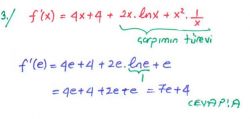 3./ f'(x) = 4x+4 + 2x.lnx + x². 1/x
çarpımın türevi
f'(e) = 4e+4 + 2e.lne + e
1
= 4e+4+2e+e = 7e+4
CEVAP: A